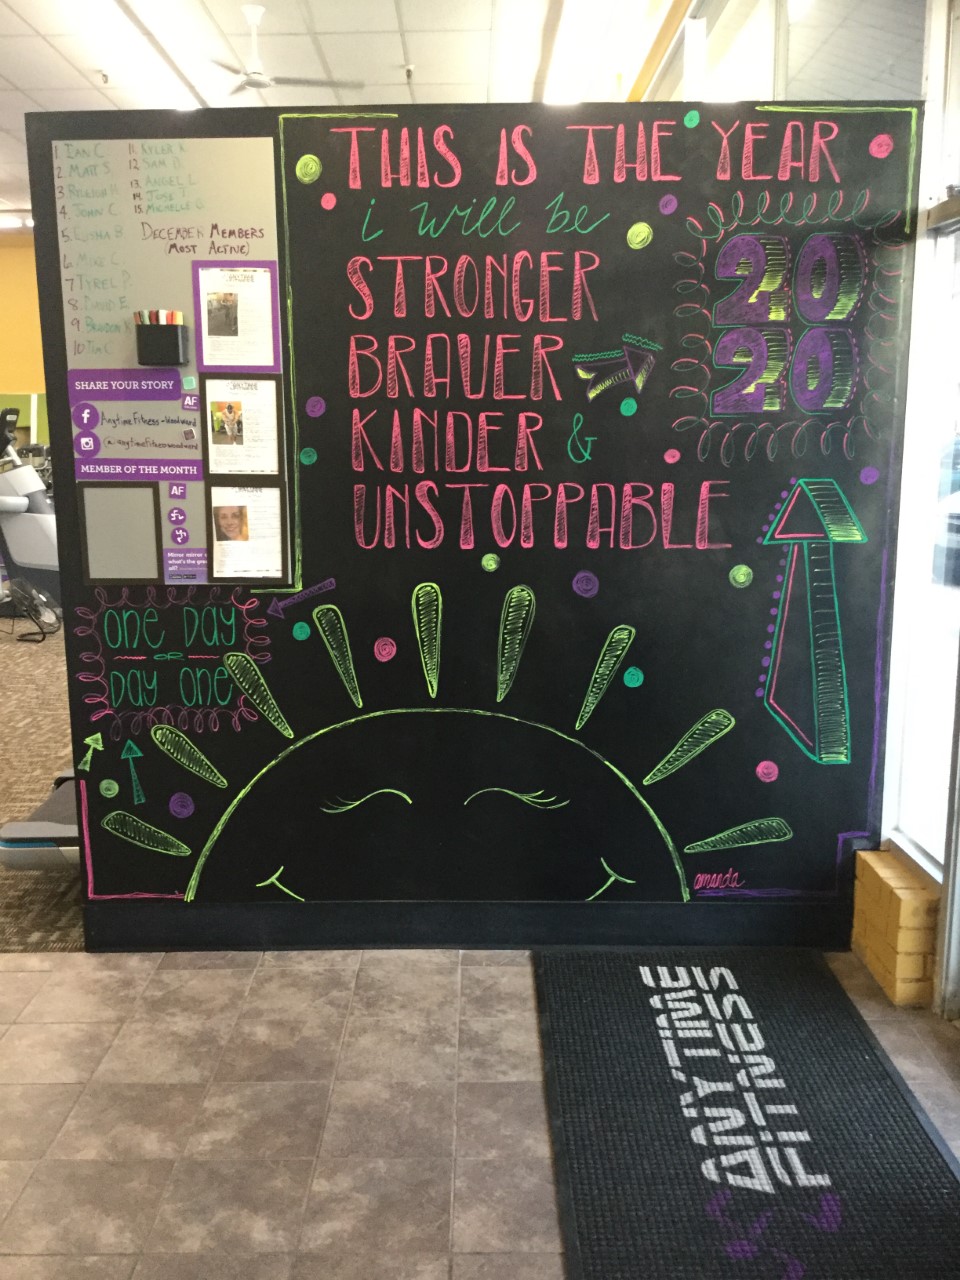 1. IAN C.
2. MATT S.
4. JOHN C.
6. MIKE C.
7 TYREL P.
8. DAVID E.
9. BRANDON K
10. TIM C.
11. KYLER K.
12 SAM B.
13. ANGEL L.
14. JOSE T.
15. MICHELLE D.
DECEMBER MEMBERS
(MOST ACTIVE)
SHARE YOUR STORY
AF
f AnytimeFitness-Woodward
@anytimefitnesswoodward
MEMBER OF THE MONTH
AF
Mirror mirror
what's the
THIS IS THE YEAR
i will be
STRONGER
BRAVER
KINDER &
UNSTOPPABLE
20
20
ONE DAY
OR
DAY ONE
amanda
ANYTIME
FITNESS